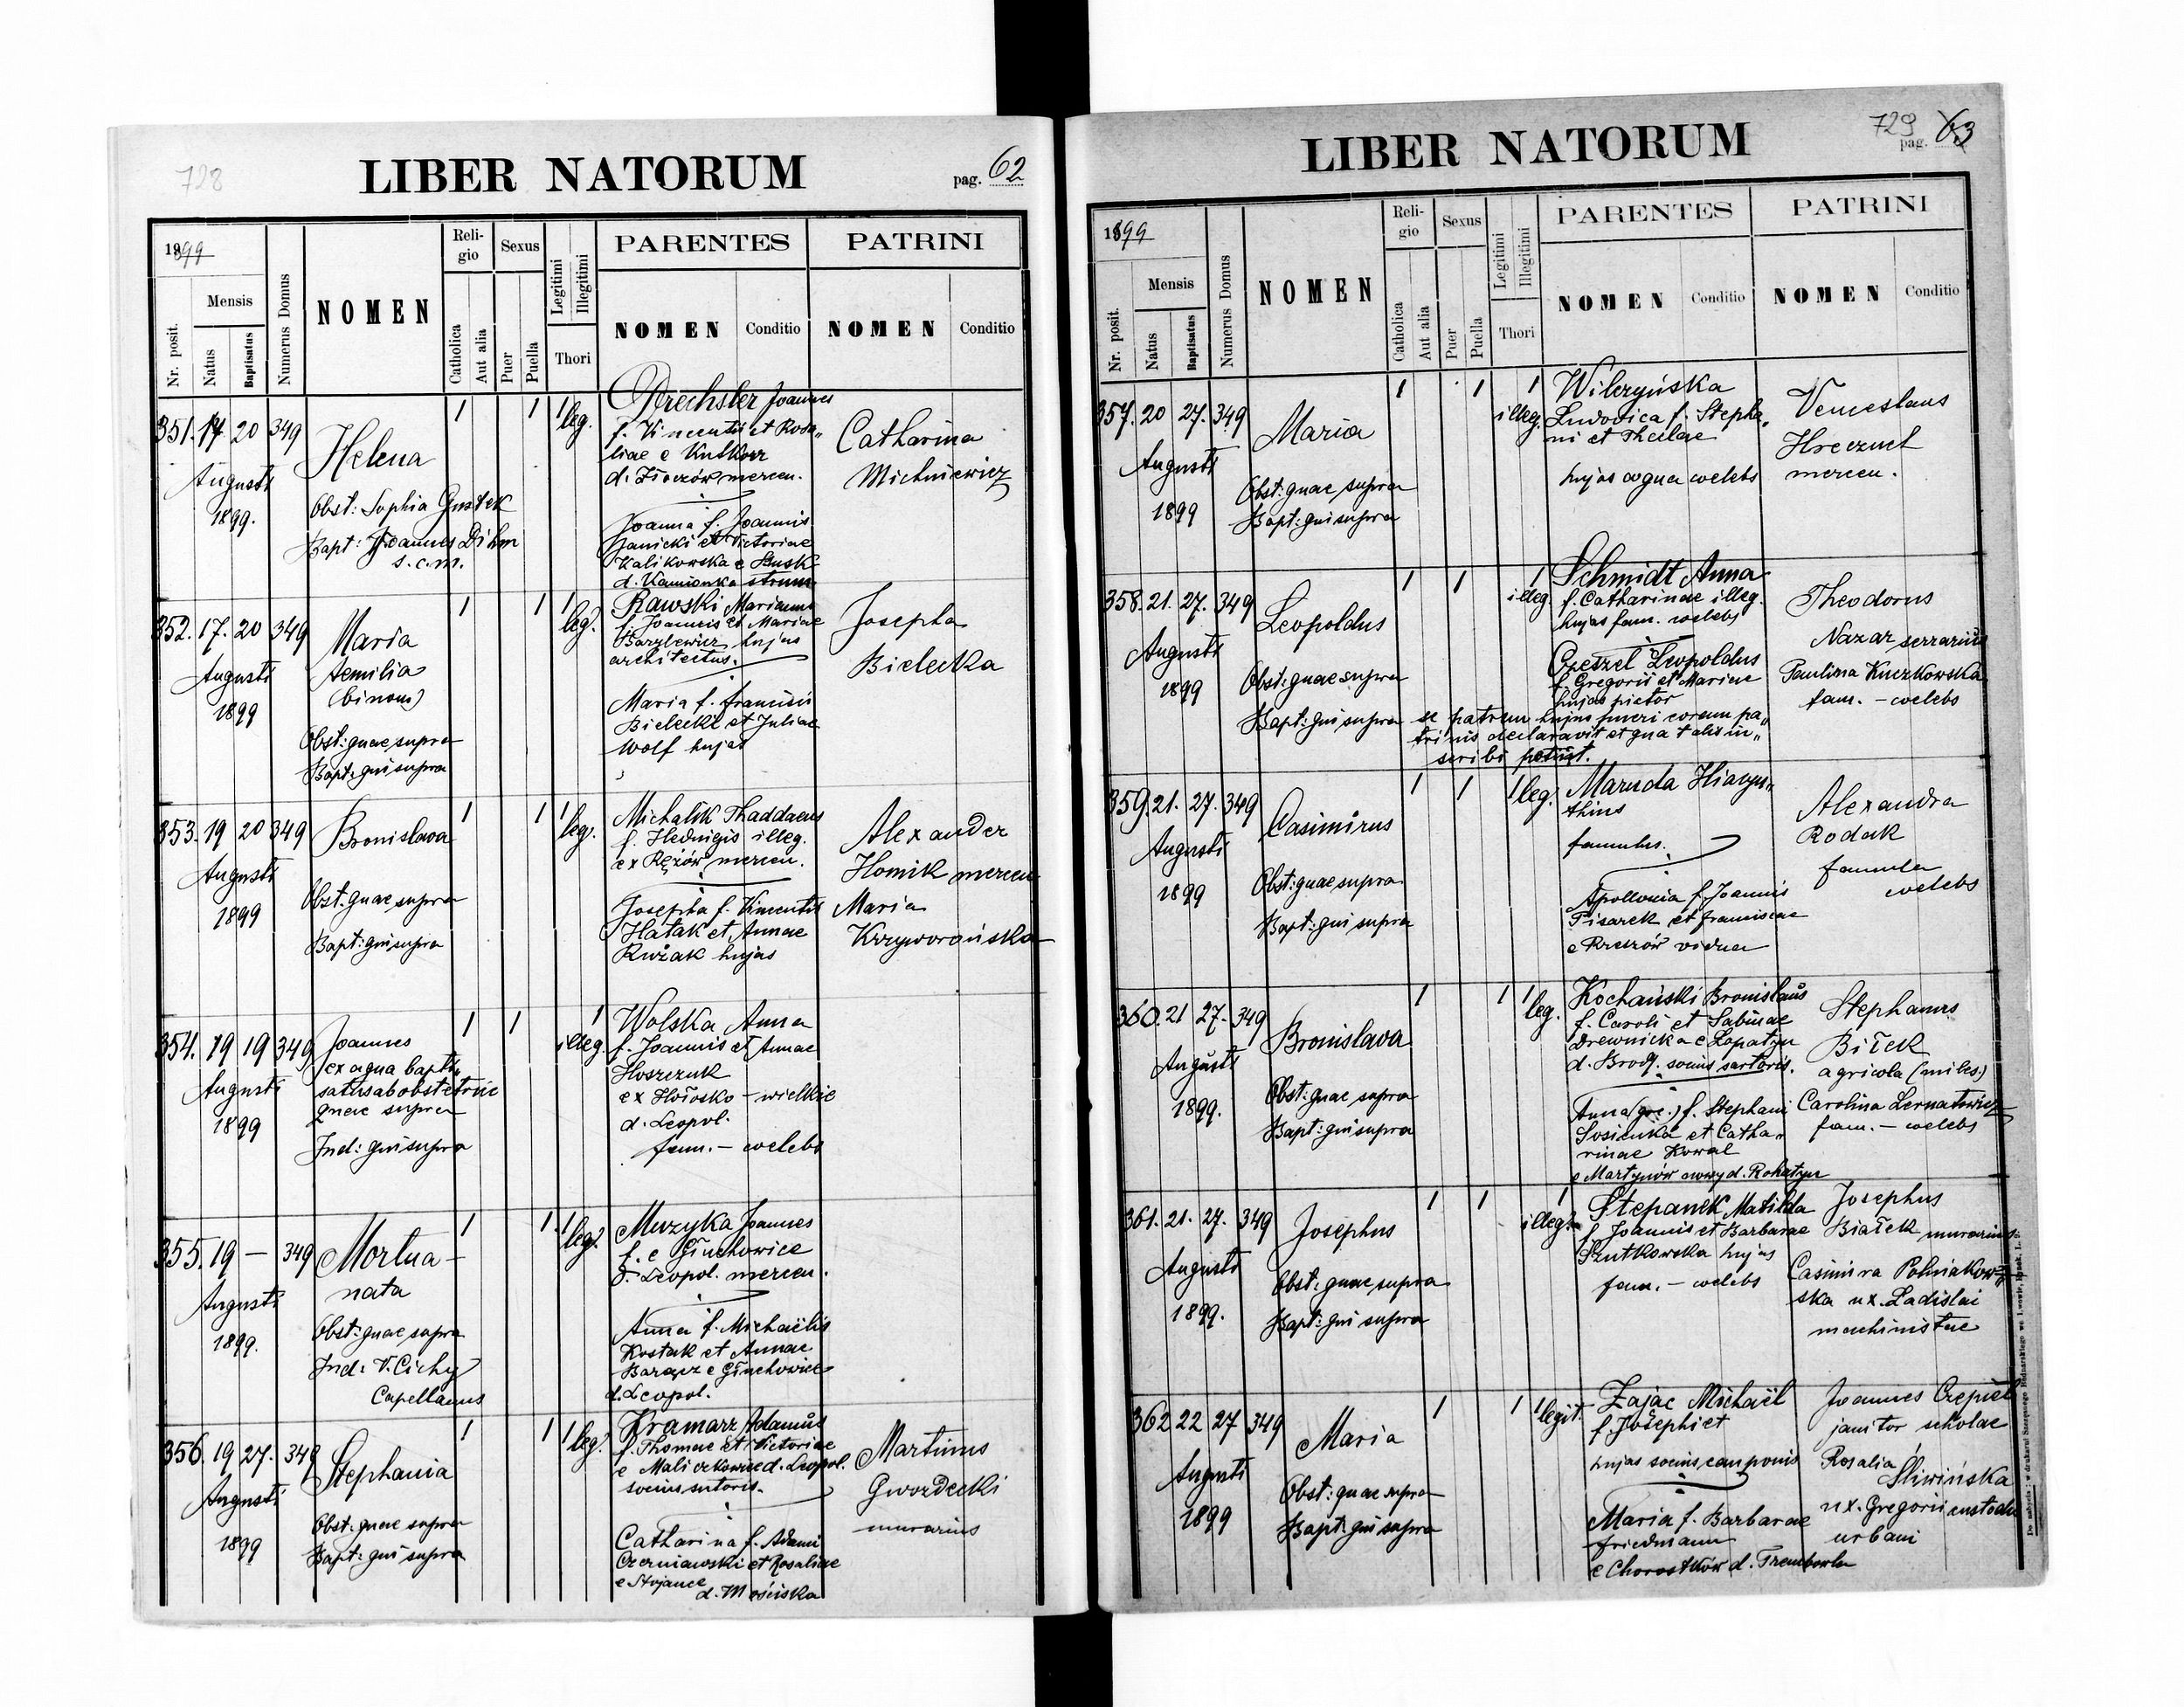 728
LIBER NATORUM
pag. 62
1899
Mensis
Nr. posit.
Natus
Baptisatus
Numerus Domus
NOMEN
Reli-
gio
Catholica
Aut alia
Sexus
Puer
Puella
Legitimi
Illegitimi
Thori
PARENTES
NOMEN
Conditio
PATRINI
NOMEN
Conditio
351. 17 20 349
Augusti
1899.
Helena
Obst: Sophia Gustek
Bapt: Joannes Dihm
s.c.m.
1 1 1 leg.
Drechsler Joannes
f. Vincentii et Rosa„
liae e Kutkorz
d. Złoczów mercen.
Joanna f. Joannis
Janicki et Victoriae
Kalikowska e Busk
d. Kamionka strum.
Catharina
Michniewicz
352. 17. 20 349
Augusti
1899
Maria
Aemilia
(binom)
Obst: quae supra
Bapt: qui supra
1 1 1 leg.
Rawski Marianus
f. Joannis et Mariae
Bazylewicz hujas
architectus.
Maria f. Francisci
Bielecki et Juliae
Wolf hujas
Josepha
Bielecka
353. 19 20 349
Augusti
1899
Bronislava
Obst: quae supra
Bapt: qui supra
1 1 1 leg.
Michalik Thaddaeus
f. Hedwigis illeg.
mercen.
Josepha f. Vincentii
Hatak et Annae
Rużak hujas
Alexander
Homik mercen
Maria
Krzyworońska
354. 19 19 349
Augusti
1899
Joannes
ex aqua bapti„
satus ab obstetrice
quae supra
Ind: qui supra
1 1 1 illeg.
Wolska Anna
f. Joannis et Annae
Hoszczuk
ex Hołosko – wielkie
d. Leopol.
fam. – coelebs
355. 19 — 349
Augusti
1899.
Mortua –
nata
Obst: quae supra
Ind: V. Cichy
Capellanus
1 1 1 leg.
Muzyka Joannes
f. e Głuchowice
d. Leopol. mercen.
Anna f. Michaëlis
Kostak et Annae
Barącz e Głuchowice
d. Leopol.
356. 19 27. 349
Augusti
1899
Stephania
Obst: quae supra
Bapt: qui supra
1 1 1 leg.
Kramarz Adamus
f. Thomae et Victoriae
e Maliczkowice d. Leopol.
socius sutoris.
Catharina f. Adami
Czerniawski et Rosaliae
e Stojance
d. Mościska
Martinus
Gwozdecki
murarius
LIBER NATORUM
729
pag. 63
1899
Mensis
Nr. posit.
Natus
Baptisatus
Numerus Domus
NOMEN
Reli-
gio
Catholica
Aut alia
Sexus
Puer
Puella
Legitimi
Illegitimi
Thori
PARENTES
NOMEN
Conditio
PATRINI
NOMEN
Conditio
357. 20 27. 349
Augusti
1899
Maria
Obst: quae supra
Bapt: qui supra
1 1 1 illeg.
Wilczyńska
Ludovica f. Stepha„
ni et Theclae
hujas coqua coelebs
Venceslaus
Hreczuch
mercen.
358. 21. 27. 349
Augusti
1899
Leopoldus
Obst: quae supra
Bapt: qui supra
1 1 1 illeg.
Schmidt Anna
f. Catharinae illeg.
hujas fam. coelebs
Leopoldus
f. Gregorii et Mariae
hujas pictor
se patrem hujus pueri coram pa„
trinis declaravit et qua talis in„
scribi petiit.
Theodorus
Nazar serrarius
Paulina Kuczkowska
fam. – coelebs
359. 21. 27. 349
Augusti
1899
Casimirus
Obst: quae supra
Bapt: qui supra
1 1 1 leg.
Maruda Hiacyn„
thius
famulus.
Apollonia f. Joannis
Pisarek et Franciscae
e Rzeszów vidua
Alexandra
Rodak
famula
coelebs
360. 21 27. 349
Augusti
1899.
Bronislava
Obst: quae supra
Bapt: qui supra
1 1 1 leg.
Kochański Bronislaus
f. Caroli et Sabinae
Drewnicka e Lopatyn
d. Brody. socius sartoris.
Anna (grc.) f. Stephani
Sosienka et Catha„
rinae Kowal
e Martynów nowy d. Rohatyn
Stephanus
Biłek
agricola (miles)
Carolina Lernatowicz
fam. – coelebs
361. 21. 27. 349
Augusti
1899.
Josephus
Obst: quae supra
Bapt: qui supra
1 1 1 illeg.
Stepanek Matilda
f. Joannis et Barbarae
Szutkowska hujas
fam. – coelebs
Josephus
Białek murarius
Casimira Polniakow„
ska ux. Ladislai
machinistae
362 22 27 349
Augusti
1899
Maria
Obst: quae supra
Bapt: qui supra
1 1 1 legit.
Zając Michaël
f. Josephi et
hujas socius cauponis
Maria f. Barbarae
Friedmann
e Chorostków d. Trembowla
Joannes Czepiel
janitor scholae
Rosalia
Śliwińska
ux. Gregorii custodis
urbani